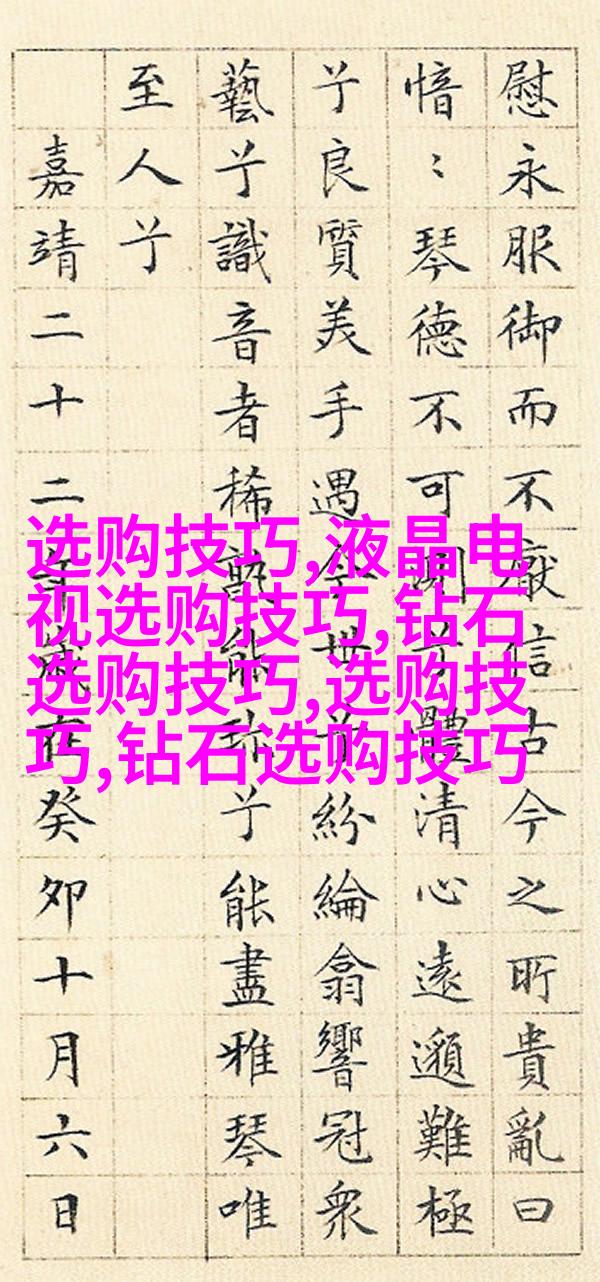 慰永服御而不厭信古今之所貴亂曰
愔〻琴德不可測兮體清心遠邈難極
兮良質美手遇今世兮紛綸翕響冠衆
藝兮識音者稀孰能珎兮能盡雅琴唯
至人兮
嘉靖二十二年歲在癸卯十月六日
选购技巧,液晶电
视选购技巧,钻石
选购技巧,选购技
巧,钻石选购技巧